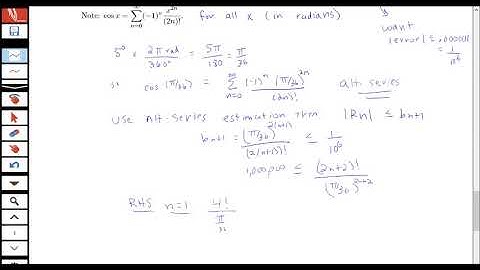 Note: cos x = ∑ n=0 (-1)^n x^{2n}/(2n)!, for all x (in radians)
want
|error| ≤ .000001
= 1/10^6
5° × 2π rad/360° = 5π/180 = π/36
so cos(π/36) = ∑_{n=0}^{∞} (-1)^n (π/36)^{2n}/(2n)! alt. series
use Alt. Series estimation thm |Rn| ≤ bn+1
bn+1 = (π/36)^{2(n+1)}/(2(n+1))! ≤ 1/10^6
1,000,000 ≤ (2n+2)!/(π/36)^{2n+2}
RHS n=1 4!/π